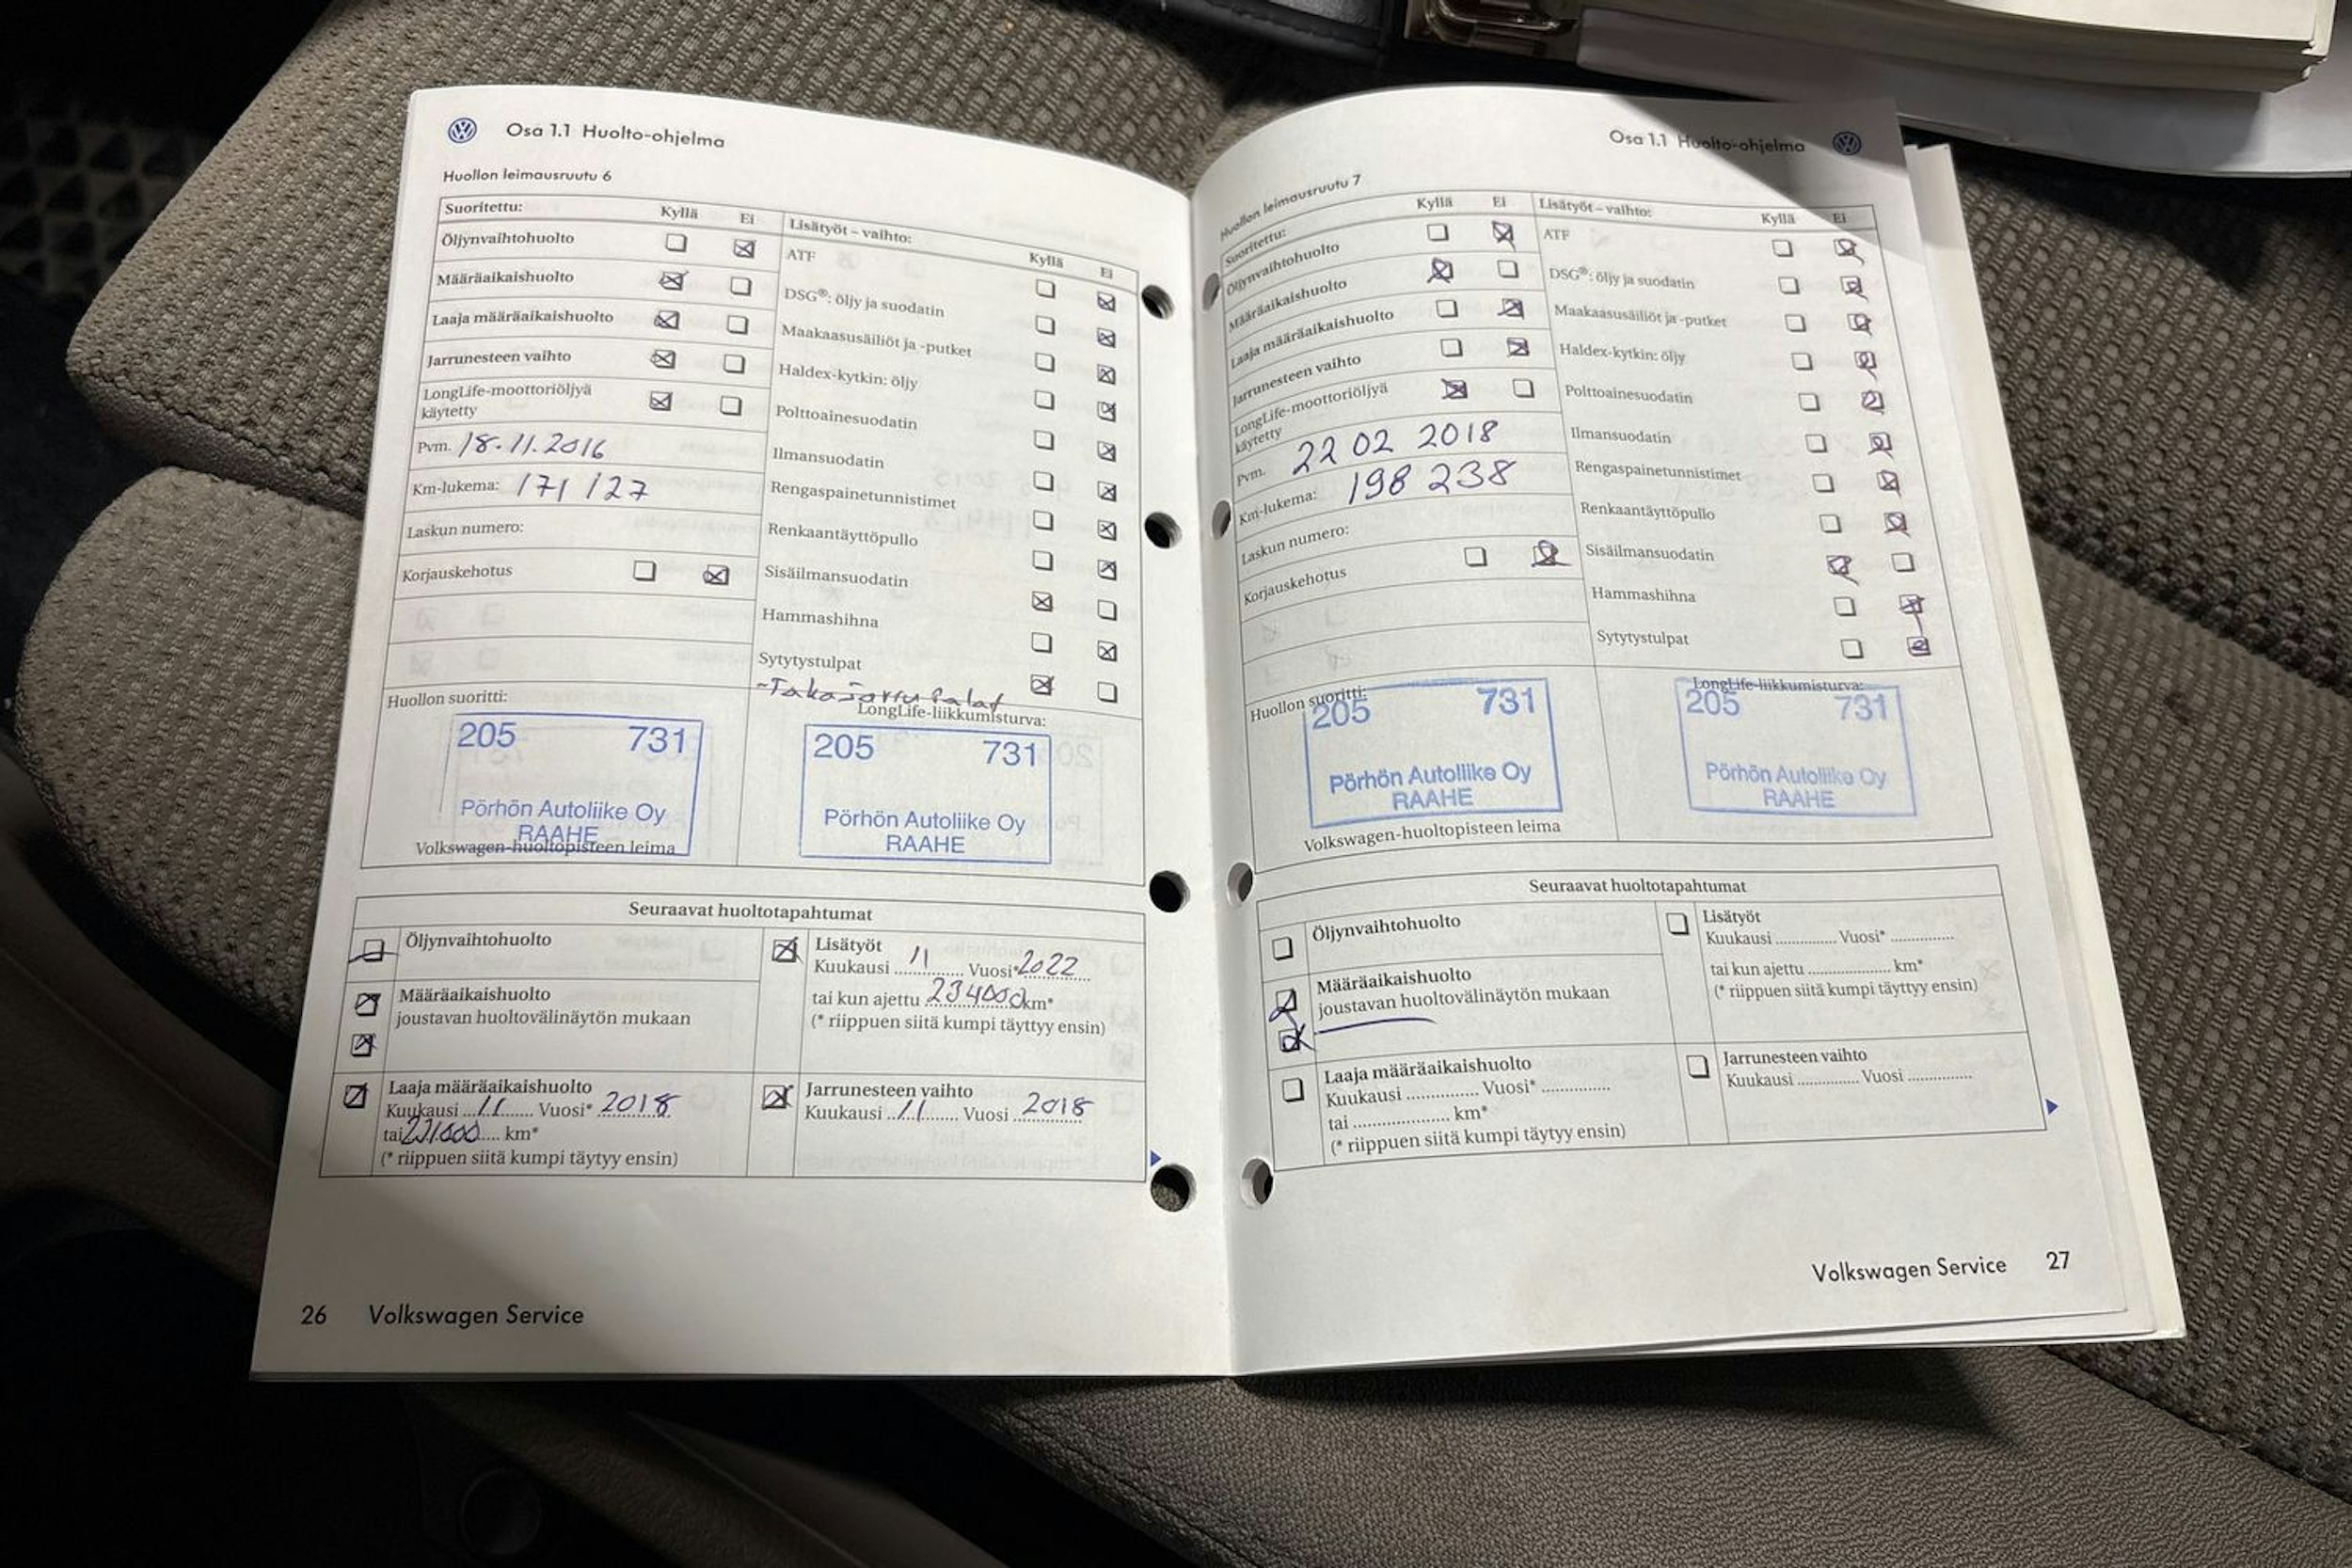 Osa 1.1 Huolto-ohjelma
Huollon leimausruutu 6
Suoritettu: Kyllä Ei
Öljynvaihtohuolto
Määräaikaishuolto
Laaja määräaikaishuolto
Jarrunesteen vaihto
LongLife-moottoriöljyä
käytetty
Pvm. 18.11.2016
Km-lukema: 171 127
Laskun numero:
Korjauskehotus
Lisätyöt – vaihto: Kyllä Ei
ATF
DSG®: öljy ja suodatin
Maakaasusäiliöt ja -putket
Haldex-kytkin: öljy
Polttoainesuodatin
Ilmansuodatin
Rengaspainetunnistimet
Renkaantäyttöpullo
Sisäilmansuodatin
Hammashihna
Sytytystulpat
-Takajarrupalat
Huollon suoritti:
205 731
Pörhön Autoliike Oy
RAAHE
Volkswagen-huoltopisteen leima
LongLife-liikkumisturva:
205 731
Pörhön Autoliike Oy
RAAHE
Seuraavat huoltotapahtumat
Öljynvaihtohuolto
Määräaikaishuolto
joustavan huoltovälinäytön mukaan
Laaja määräaikaishuolto
Kuukausi ...11...... Vuosi* 2018
tai 231000 .... km*
(* riippuen siitä kumpi täytyy ensin)
Lisätyöt
Kuukausi 11 Vuosi* 2022
tai kun ajettu 234000 km*
(* riippuen siitä kumpi täyttyy ensin)
Jarrunesteen vaihto
Kuukausi ..11....... Vuosi .2018
26 Volkswagen Service
Osa 1.1 Huolto-ohjelma
Huollon leimausruutu 7
Suoritettu: Kyllä Ei
Öljynvaihtohuolto
Määräaikaishuolto
Laaja määräaikaishuolto
Jarrunesteen vaihto
LongLife-moottoriöljyä
käytetty
Pvm. 22 02 2018
Km-lukema: 198 238
Laskun numero:
Korjauskehotus
Lisätyöt – vaihto: Kyllä Ei
ATF
DSG®: öljy ja suodatin
Maakaasusäiliöt ja -putket
Haldex-kytkin: öljy
Polttoainesuodatin
Ilmansuodatin
Rengaspainetunnistimet
Renkaantäyttöpullo
Sisäilmansuodatin
Hammashihna
Sytytystulpat
Huollon suoritti:
205 731
Pörhön Autoliike Oy
RAAHE
Volkswagen-huoltopisteen leima
LongLife-liikkumisturva:
205 731
Pörhön Autoliike Oy
RAAHE
Seuraavat huoltotapahtumat
Öljynvaihtohuolto
Määräaikaishuolto
joustavan huoltovälinäytön mukaan
Laaja määräaikaishuolto
Kuukausi .............. Vuosi* ..............
tai .................... km*
(* riippuen siitä kumpi täytyy ensin)
Lisätyöt
Kuukausi ............. Vuosi* .............
tai kun ajettu .................. km*
(* riippuen siitä kumpi täyttyy ensin)
Jarrunesteen vaihto
Kuukausi ............. Vuosi .............
Volkswagen Service 27